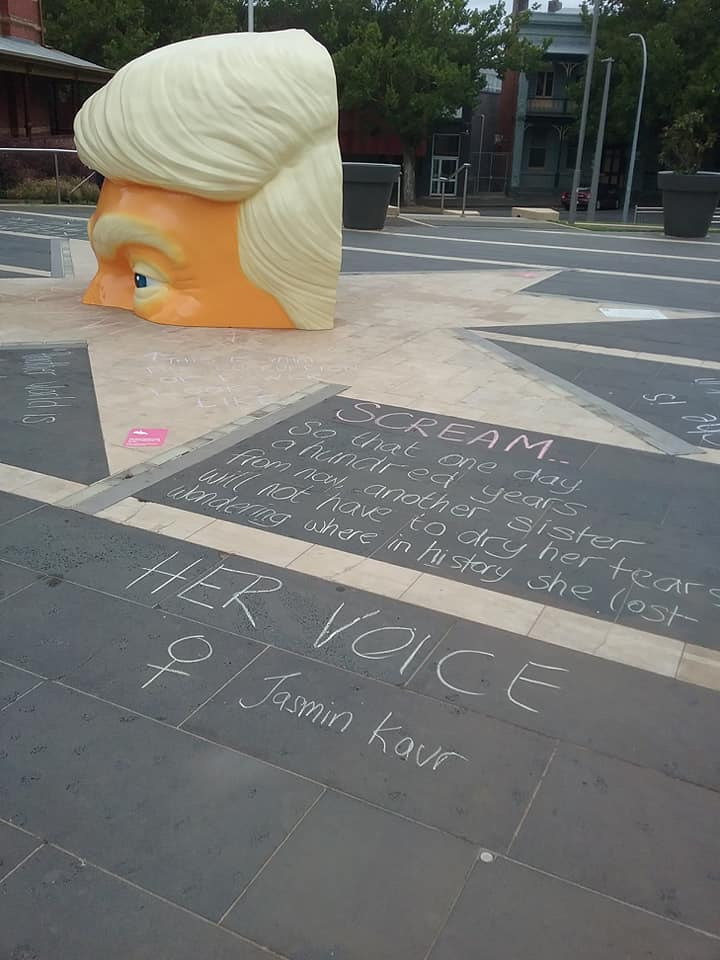 THIS IS WHAT
LIKE
World is
SCREAM..
So that one day
a hundred years
from now, another sister
will not have to dry her tears
wondering where in history she lost
HER VOICE
♀ Jasmin Kaur